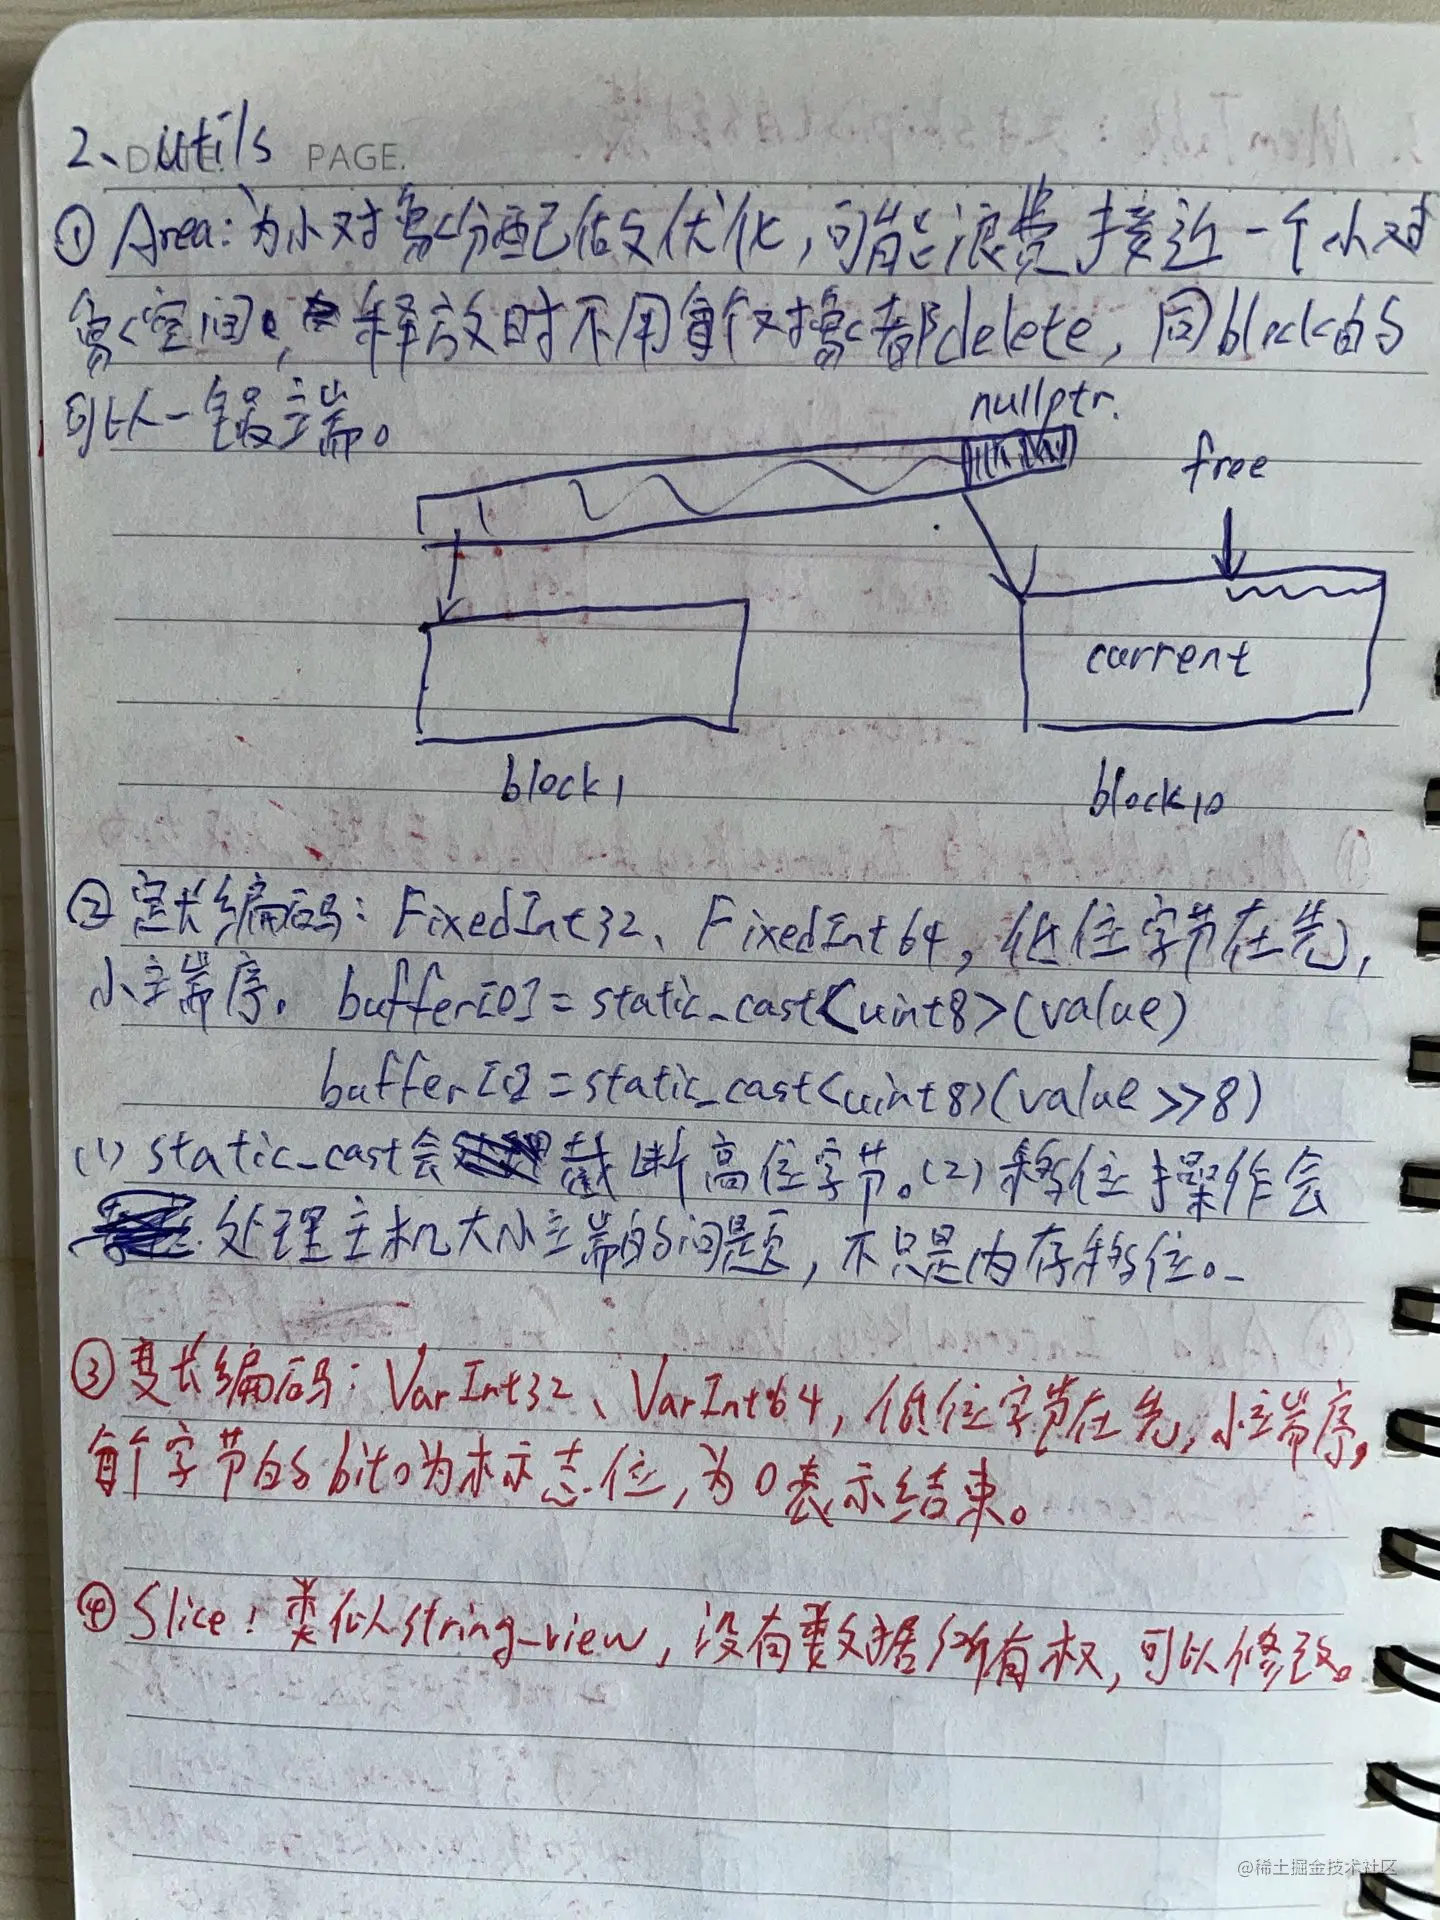 2、utils
PAGE.
① Area:为小对象分配做优化,可能浪费接近一个小对
象空间,释放时不用每个对象都delete,同block的
可以一锅端。
nullptr.
free
current
block1
block10
② 定长编码:FixedInt32、FixedInt64,低位字节在先,
小端序。buffer[0]=static_cast<uint8>(value)
buffer[1]=static_cast<uint8>(value>>8)
(1) static_cast会截断高位字节。(2)移位操作会
处理主机大小端的问题,不只是内存移位。
③ 变长编码:VarInt32、VarInt64,低位字节在先,小端序,
每个字节的bit0为标志位,为0表示结束。
④ Slice:类似string_view,没有数据所有权,可以修改。
@稀土掘金技术社区